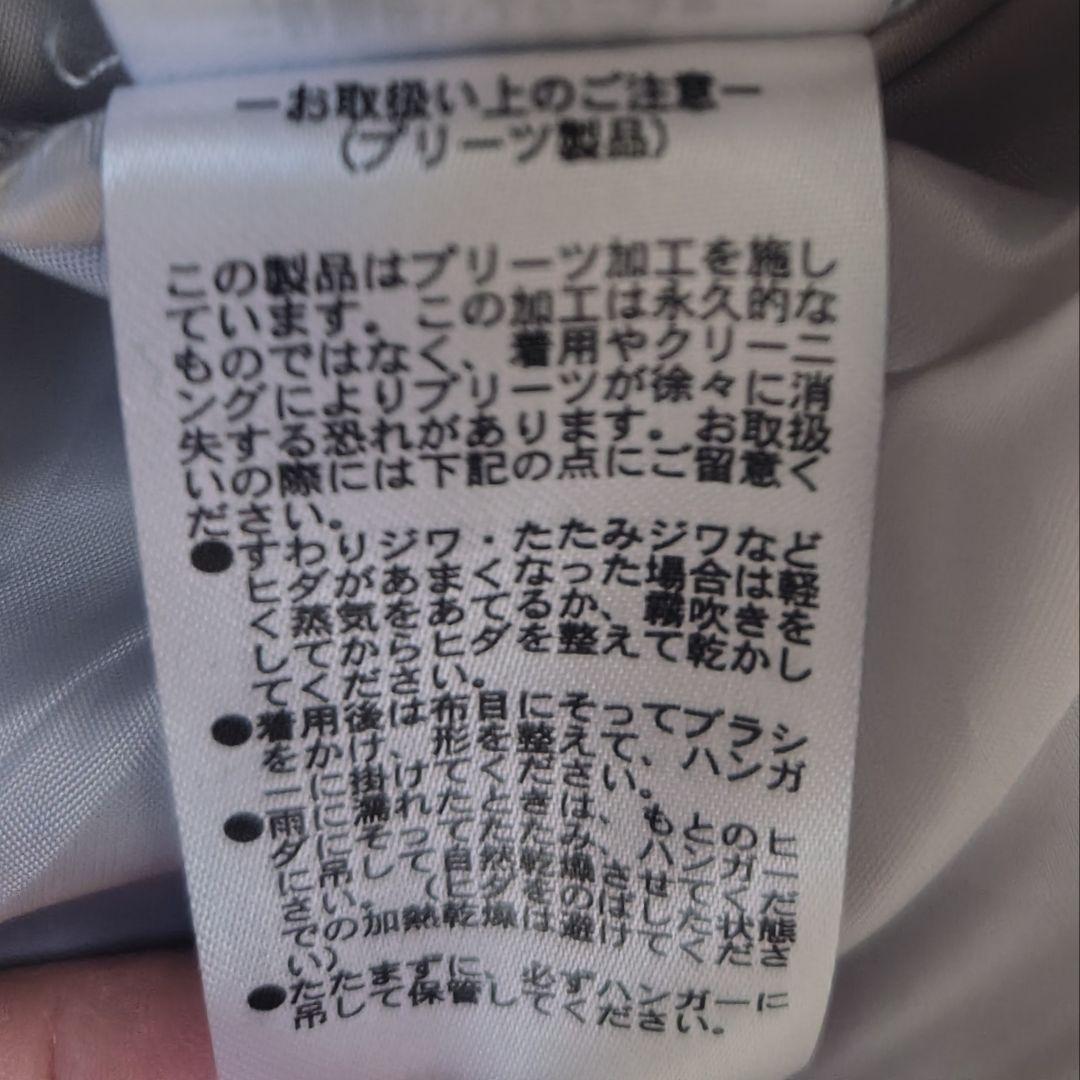 ーお取扱い上のご注意ー
(プリーツ製品)
この製品はプリーツ加工を施し
ています。この加工は永久的な
ものではなく、着用やクリーニ
ングによりプリーツが徐々に消
失する恐れがあります。お取扱
いの際には下記の点にご留意く
ださい。
●すわりジワ・たたみジワなど
ヒダがあまくなった場合は軽
く蒸気をあてるか、霧吹きを
してからヒダを整えて乾かし
てください。
●着用後は布目にそってブラシ
をかけ、形を整えて、ハンガ
ーに掛けてください。
●雨に濡れたときは、もとのヒ
ダにそってたたみ、ハンガー
に吊して自然乾燥させてくだ
さい。(ヒダをのばした状態
での加熱乾燥は避けてくださ
い)
●たたまずに、必ずハンガーに
吊して保管してください。